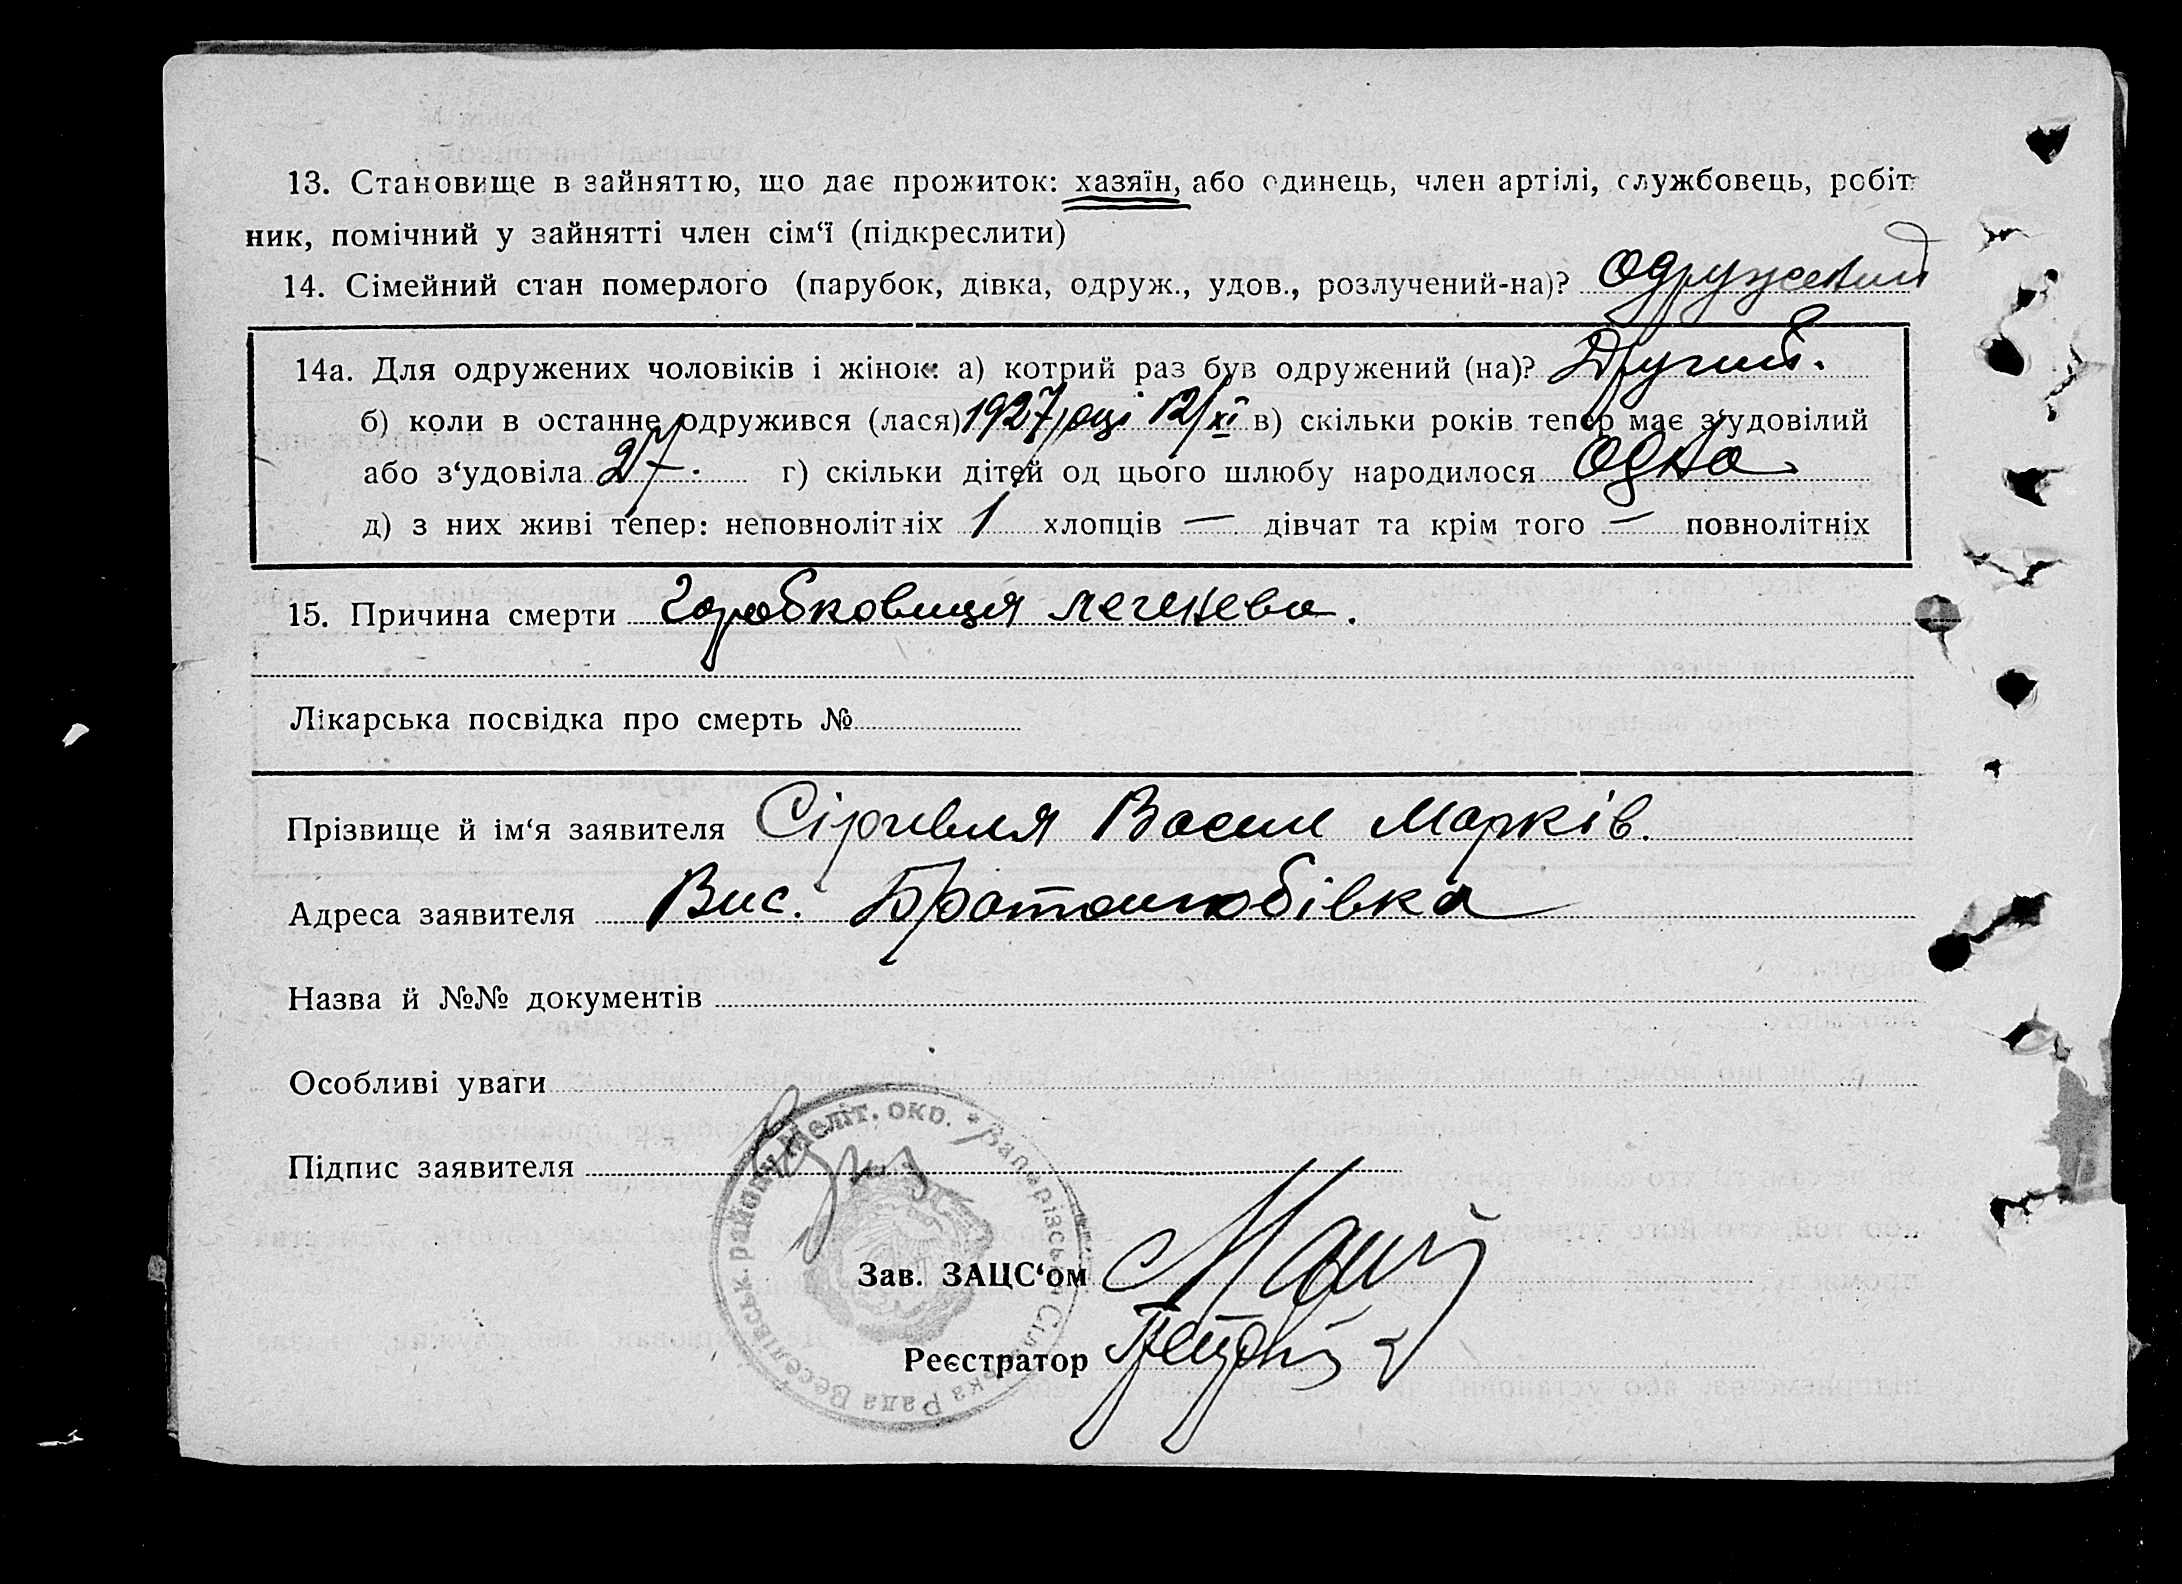 13. Становище в зайняттю, що дає прожиток: хазяїн, або одинець, член артілі, службовець, робіт-
ник, помічний у зайнятті член сім‘ї (підкреслити)
14. Сімейний стан померлого (парубок, дівка, одруж., удов., розлучений-на)? Одружений
14а. Для одружених чоловіків і жінок: а) котрий раз був одружений (на)? Другий.
б) коли в останнє одружився (лася) 1927 році 12/XI в) скільки років тепер має з‘удовілий
або з‘удовіла 27. г) скільки дітей од цього шлюбу народилося одна
д) з них живі тепер: неповнолітніх 1 хлопців — дівчат та крім того — повнолітніх
15. Причина смерти Горобковиця легенева.
Лікарська посвідка про смерть №
Прізвище й ім‘я заявителя Василь Марків.
Адреса заявителя Вис. Братолюбівка
Назва й №№ документів
Особливі уваги
Підпис заявителя
Зав. ЗАЦС‘ом
Реєстратор
Запорізська Сільська Рада Веселівськ. району Меліт. окр. *